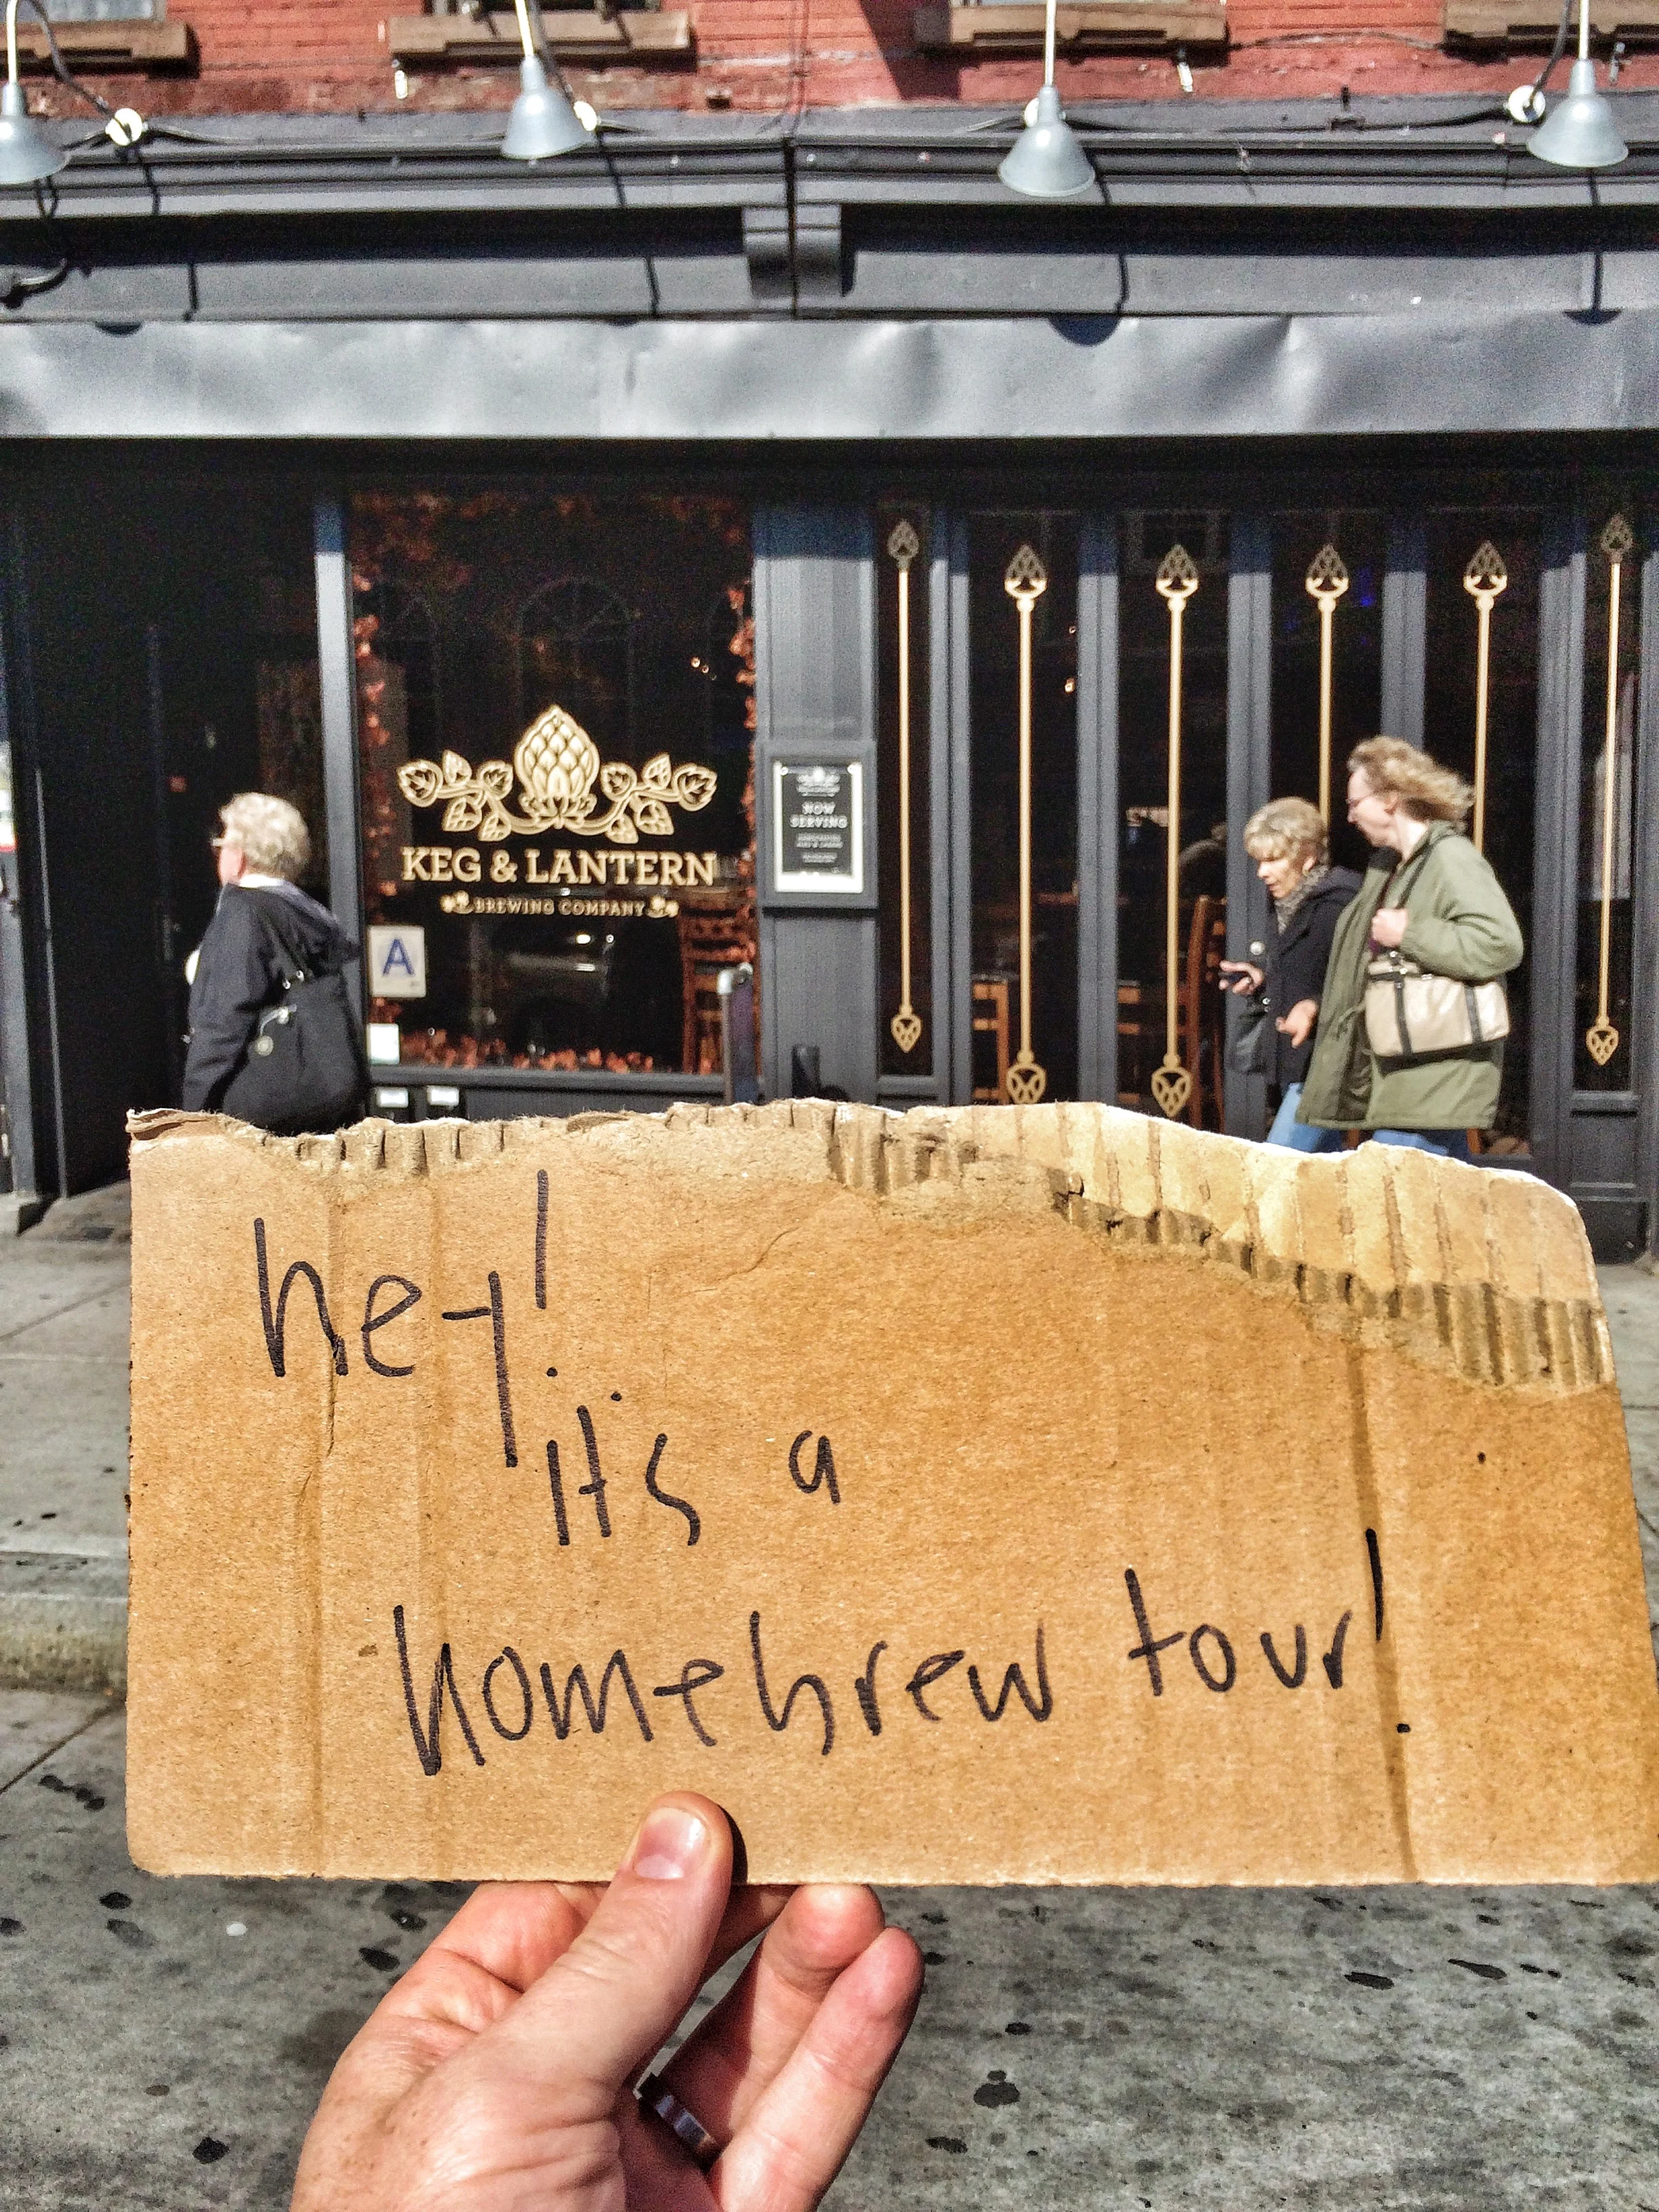 KEG & LANTERN
BREWING COMPANY
A
NOW
SERVING
hey!
it's a
homebrew tour!